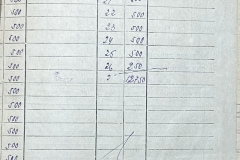 500 21 500
500 22 500
500 23 500
500 24 500
500 25 500
500 26 250
500 2 12750
500
500
500
500
500
500